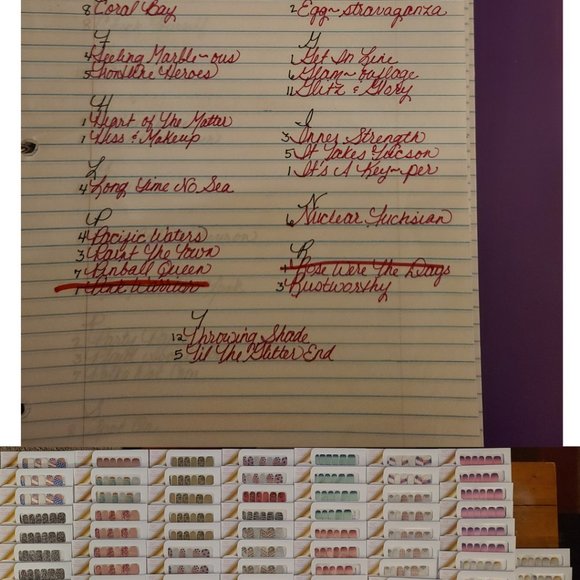 8 Coral Bay
2 Egg~stravaganza
F
4 Feeling Marble~ous
5 Frontline Heroes
G
1 Get In Line
6 Glam~ouflage
11 Glitz & Glory
H
1 Heart of The Matter
1 Kiss & Makeup
I
3 Inner Strength
5 It Takes Tucson
1 It's A Key~per
L
4 Long Time No Sea
N
6 Nuclear Fuchsian
P
4 Pacific Waters
3 Paint The Town
7 Pinball Queen
1 Pink Warrior
R
1 Rose Were The Days
3 Rustworthy
T
12 Throwing Shade
5 Til The Glitter End